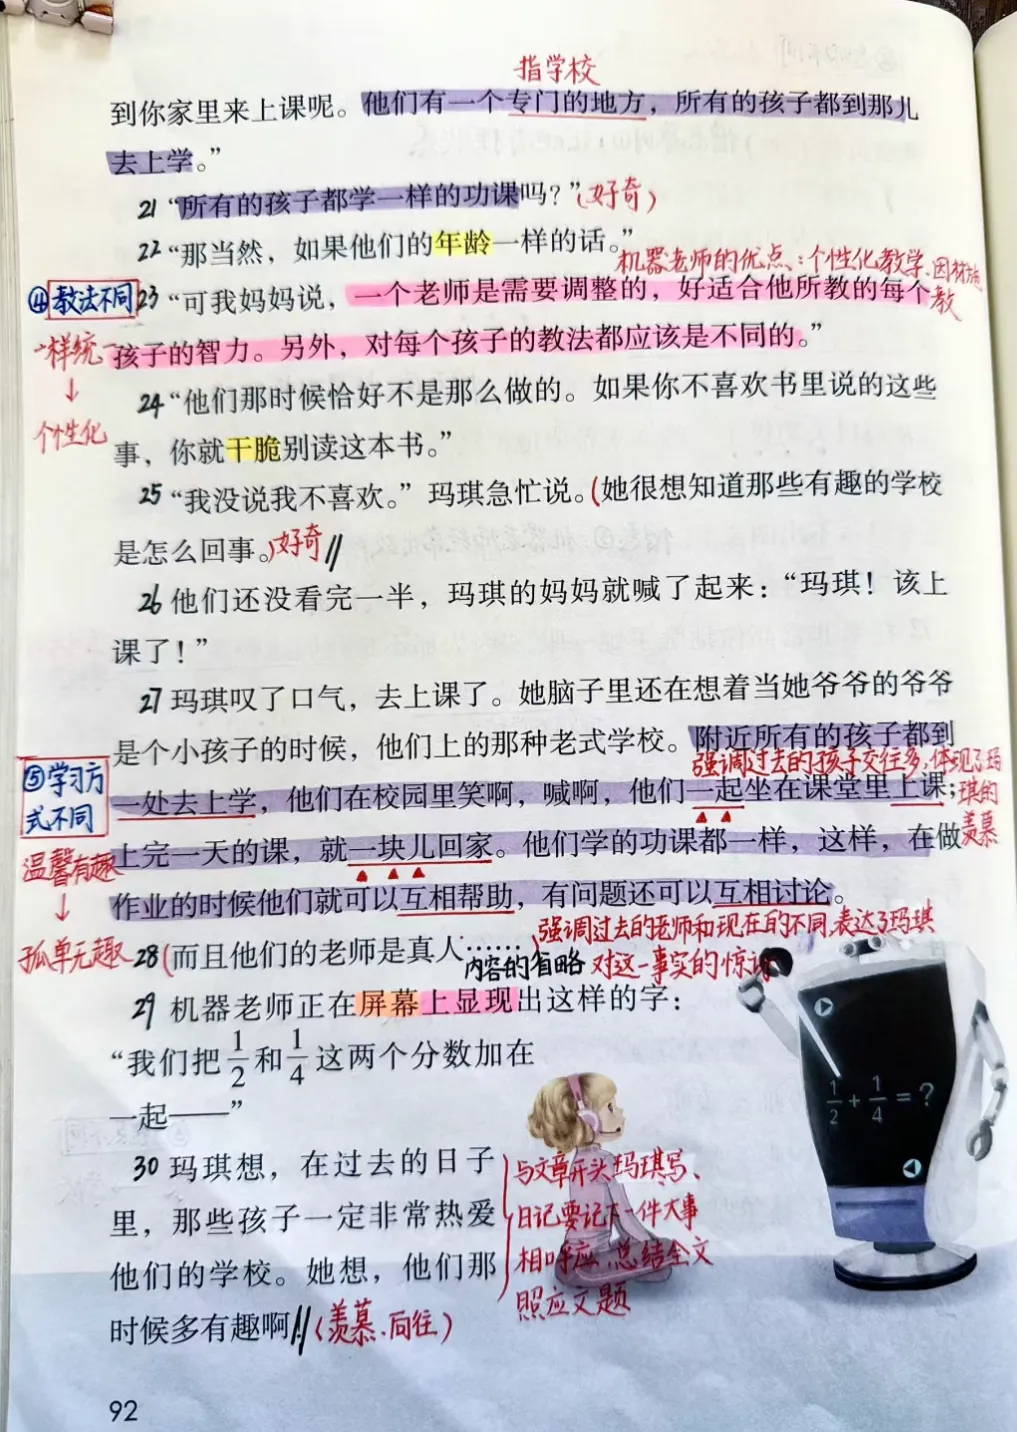 指学校
到你家里来上课呢。他们有一个专门的地方，所有的孩子都到那儿
去上学。”
21 “所有的孩子都学一样的功课吗？”（好奇）
22 “那当然，如果他们的年龄一样的话。”
机器老师的优点：个性化教学、因材施教
④教法不同
23 “可我妈妈说，一个老师是需要调整的，好适合他所教的每个
一样统一
孩子的智力。另外，对每个孩子的教法都应该是不同的。”
↓
个性化
24 “他们那时候恰好不是那么做的。如果你不喜欢书里说的这些
事，你就干脆别读这本书。”
25 “我没说我不喜欢。”玛琪急忙说。（她很想知道那些有趣的学校
是怎么回事。）好奇//
26 他们还没看完一半，玛琪的妈妈就喊了起来：“玛琪！该上
课了！”
27 玛琪叹了口气，去上课了。她脑子里还在想着当她爷爷的爷爷
是个小孩子的时候，他们上的那种老式学校。附近所有的孩子都到
强调过去的孩子交往多，体现了玛琪的羡慕
⑤学习方式不同
一处去上学，他们在校园里笑啊，喊啊，他们一起坐在课堂里上课；
温馨有趣
上完一天的课，就一块儿回家。他们学的功课都一样，这样，在做
↓
作业的时候他们就可以互相帮助，有问题还可以互相讨论。
孤单无趣
强调过去的老师和现在的不同，表达了玛琪
对这一事实的惊讶
28（而且他们的老师是真人……）
内容的省略
29 机器老师正在屏幕上显现出这样的字：
“我们把1/2和1/4这两个分数加在
一起——”
1/2+1/4=?
30 玛琪想，在过去的日子
里，那些孩子一定非常热爱
他们的学校。她想，他们那
时候多有趣啊！//（羡慕.向往）
与文章开头玛琪写、
日记要记下一件大事
相呼应，总结全文
照应文题
92